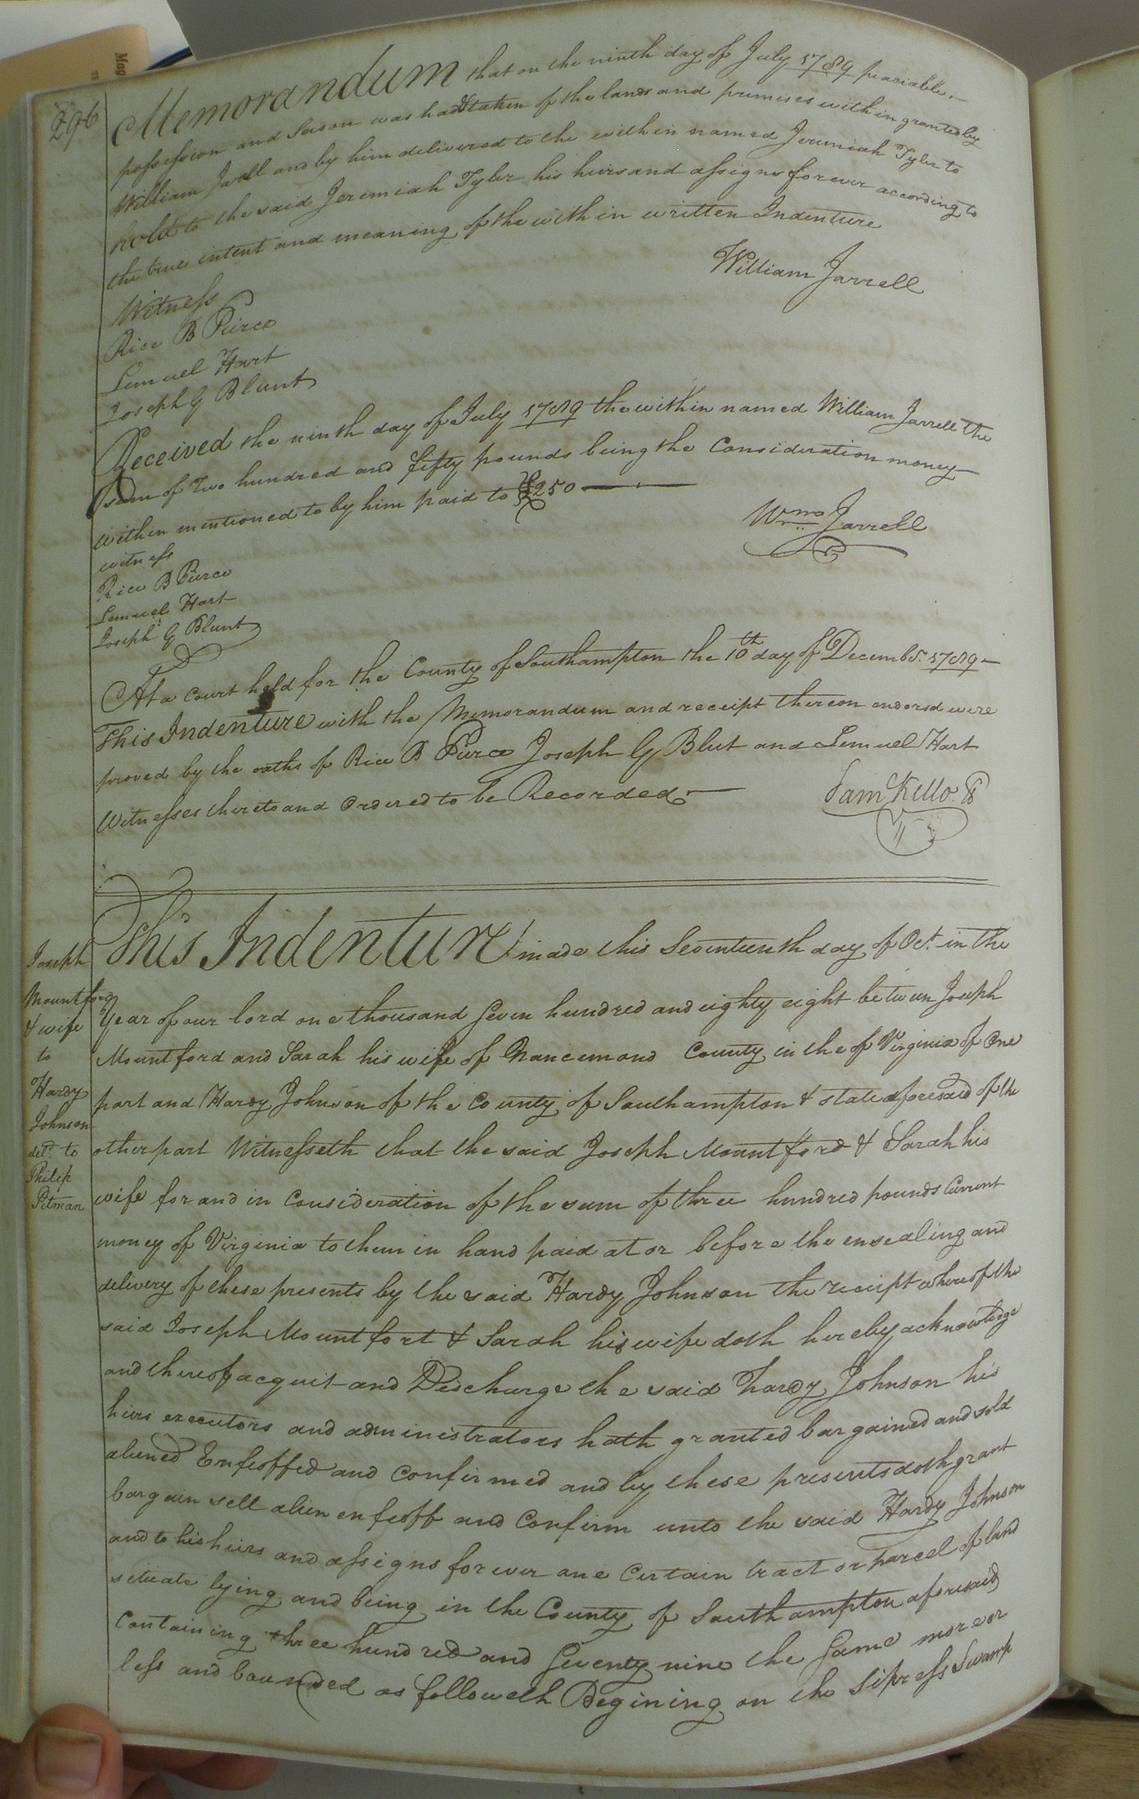 296
Memorandum that on the ninth day of July 1789 peaciable
possession and Seison was had & taken of the lands and premises within granted by
William Jarell and by him delivered to the within named Jeremiah Tyler to
hold to the said Jeremiah Tyler his heirs and assigns forever according to
the true intent and meaning of the within written Indenture
William Jarrell
Witness
Rice B Pierce
Lemuel Hart
Joseph G Blunt
Received the ninth day of July 1789 the within named William Jarrell the
sum of Two hundred and fifty pounds being the Consideration money
within mentioned to by him paid to £250
Wm. Jarrell
witness
Rice B Pierce
Lemuel Hart
Joseph G Blunt
At a Court held for the County of Southampton the 10th day of Decembr. 1789
This Indenture with the Memorandum and receipt thereon endorsd were
proved by the oaths of Rice B Pierce Joseph G Blut and Lemuel Hart
Witnesses thereto and Ordered to be Recorded
Sam Kello
Joseph
Mountford
& wife
to
Hardy
Johnson
deld. to
Philip
Pitman
This Indenture made this Seventeenth day of Oct. in the
Year of our lord one thousand seven hundred and eighty eight between Joseph
Mountford and Sarah his wife of Nancemond County in the of Virginia of One
part and Hardy Johnson of the County of Southampton & state aforesaid of the
other part Witnesseth that the said Joseph Mountford & Sarah his
wife for and in Consideration of the sum of three hundred pounds Current
money of Virginia to them in hand paid at or before the ensealing and
delivery of these presents by the said Hardy Johnson the receipt whereof the
said Joseph Mountfort & Sarah his wife doth hereby acknowledge
and thereof acquit and Discharge the said Hardy Johnson his
heirs executors and administrators hath granted bargained and sold
aliened Enfeoffed and Confirmed and by these presents doth grant
bargain sell alien enfeoff and Confirm unto the said Hardy Johnson
and to his heirs and assigns forever one Certain tract or parcel of land
situate lying and being in the County of Southampton aforesaid
Containing three hundred and Seventy nine the Same more or
less and bounded as followeth Begining on the Sipress Swamp